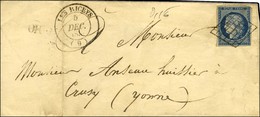 LES RICEYS
9
DEC.
(9)
Monsieur
Monsieur Anseau huissier à
Cruzy (yonne)